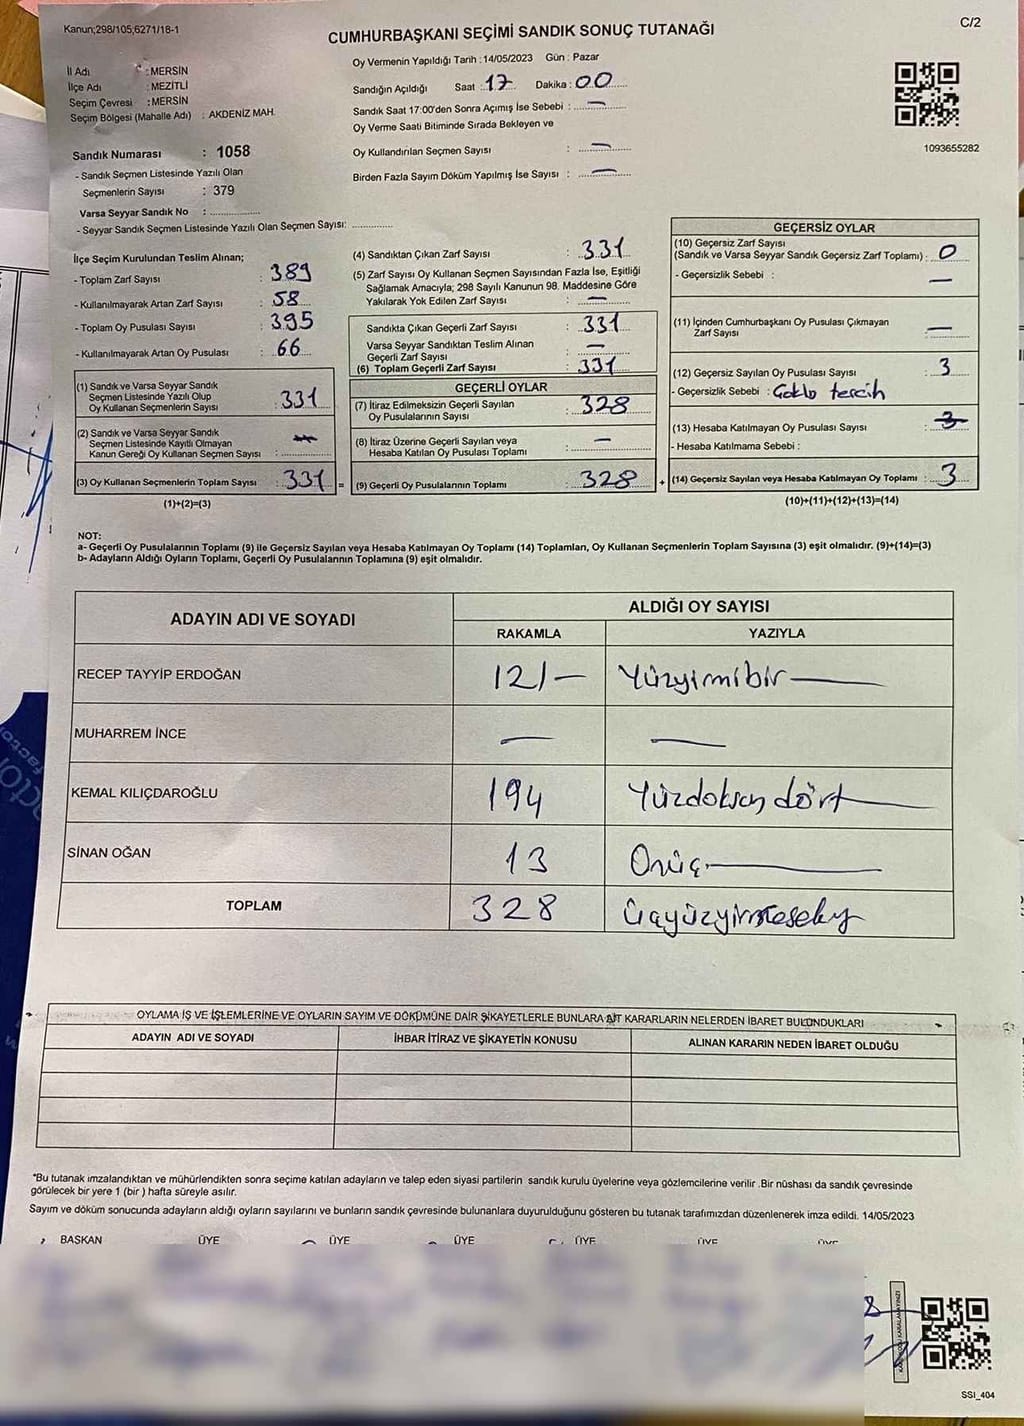 Kanun;298/105;6271/18-1
C/2
CUMHURBAŞKANI SEÇİMİ SANDIK SONUÇ TUTANAĞI
İl Adı : MERSİN
İlçe Adı : MEZİTLİ
Seçim Çevresi : MERSİN
Seçim Bölgesi (Mahalle Adı) : AKDENİZ MAH.
Sandık Numarası : 1058
- Sandık Seçmen Listesinde Yazılı Olan
Seçmenlerin Sayısı : 379
Varsa Seyyar Sandık No :
- Seyyar Sandık Seçmen Listesinde Yazılı Olan Seçmen Sayısı:
Oy Vermenin Yapıldığı Tarih : 14/05/2023 Gün : Pazar
Sandığın Açıldığı Saat : 17 Dakika : 00
Sandık Saat 17:00'den Sonra Açımış İse Sebebi : —
Oy Verme Saati Bitiminde Sırada Bekleyen ve
Oy Kullandırılan Seçmen Sayısı : —
Birden Fazla Sayım Döküm Yapılmış İse Sayısı : —
1093655282
İlçe Seçim Kurulundan Teslim Alınan;
- Toplam Zarf Sayısı : 389
- Kullanılmayarak Artan Zarf Sayısı : 58
- Toplam Oy Pusulası Sayısı : 395
- Kullanılmayarak Artan Oy Pusulası : 66
(1) Sandık ve Varsa Seyyar Sandık
Seçmen Listesinde Yazılı Olup
Oy Kullanan Seçmenlerin Sayısı : 331
(2) Sandık ve Varsa Seyyar Sandık
Seçmen Listesinde Kayıtlı Olmayan
Kanun Gereği Oy Kullanan Seçmen Sayısı :
(3) Oy Kullanan Seçmenlerin Toplam Sayısı : 331 =
(1)+(2)=(3)
(4) Sandıktan Çıkan Zarf Sayısı : 331
(5) Zarf Sayısı Oy Kullanan Seçmen Sayısından Fazla İse, Eşitliği
Sağlamak Amacıyla; 298 Sayılı Kanunun 98. Maddesine Göre
Yakılarak Yok Edilen Zarf Sayısı : —
Sandıkta Çıkan Geçerli Zarf Sayısı : 331
Varsa Seyyar Sandıktan Teslim Alınan
Geçerli Zarf Sayısı : —
(6) Toplam Geçerli Zarf Sayısı : 331
GEÇERLİ OYLAR
(7) İtiraz Edilmeksizin Geçerli Sayılan
Oy Pusulalarının Sayısı : 328
(8) İtiraz Üzerine Geçerli Sayılan veya
Hesaba Katılan Oy Pusulası Toplamı : —
(9) Geçerli Oy Pusulalarının Toplamı : 328 +
GEÇERSİZ OYLAR
(10) Geçersiz Zarf Sayısı
(Sandık ve Varsa Seyyar Sandık Geçersiz Zarf Toplamı) : 0
- Geçersizlik Sebebi : —
(11) İçinden Cumhurbaşkanı Oy Pusulası Çıkmayan
Zarf Sayısı : —
(12) Geçersiz Sayılan Oy Pusulası Sayısı : 3
- Geçersizlik Sebebi : Çoklo tercih
(13) Hesaba Katılmayan Oy Pusulası Sayısı : 3
- Hesaba Katılmama Sebebi :
(14) Geçersiz Sayılan veya Hesaba Katılmayan Oy Toplamı : 3
(10)+(11)+(12)+(13)=(14)
NOT:
a- Geçerli Oy Pusulalarının Toplamı (9) ile Geçersiz Sayılan veya Hesaba Katılmayan Oy Toplamı (14) Toplamları, Oy Kullanan Seçmenlerin Toplam Sayısına (3) eşit olmalıdır. (9)+(14)=(3)
b- Adayların Aldığı Oyların Toplamı, Geçerli Oy Pusulalarının Toplamına (9) eşit olmalıdır.
ADAYIN ADI VE SOYADI
ALDIĞI OY SAYISI
RAKAMLA YAZIYLA
RECEP TAYYİP ERDOĞAN 121— Yüzyirmibir—
MUHARREM İNCE — —
KEMAL KILIÇDAROĞLU 194 Yüzdoksan dört—
SİNAN OĞAN 13 Onüç—
TOPLAM 328 Üçyüzyirmisekiz
OYLAMA İŞ VE İŞLEMLERİNE VE OYLARIN SAYIM VE DÖKÜMÜNE DAİR ŞİKAYETLERLE BUNLARA AİT KARARLARIN NELERDEN İBARET BULUNDUKLARI
ADAYIN ADI VE SOYADI İHBAR İTİRAZ VE ŞİKAYETİN KONUSU ALINAN KARARIN NEDEN İBARET OLDUĞU
*Bu tutanak imzalandıktan ve mühürlendikten sonra seçime katılan adayların ve talep eden siyasi partilerin sandık kurulu üyelerine veya gözlemcilerine verilir .Bir nüshası da sandık çevresinde
görülecek bir yere 1 (bir ) hafta süreyle asılır.
Sayım ve döküm sonucunda adayların aldığı oyların sayılarını ve bunların sandık çevresinde bulunanlara duyurulduğunu gösteren bu tutanak tarafımızdan düzenlenerek imza edildi. 14/05/2023
BAŞKAN ÜYE ÜYE ÜYE ÜYE ÜYE ÜYE
SSI_404